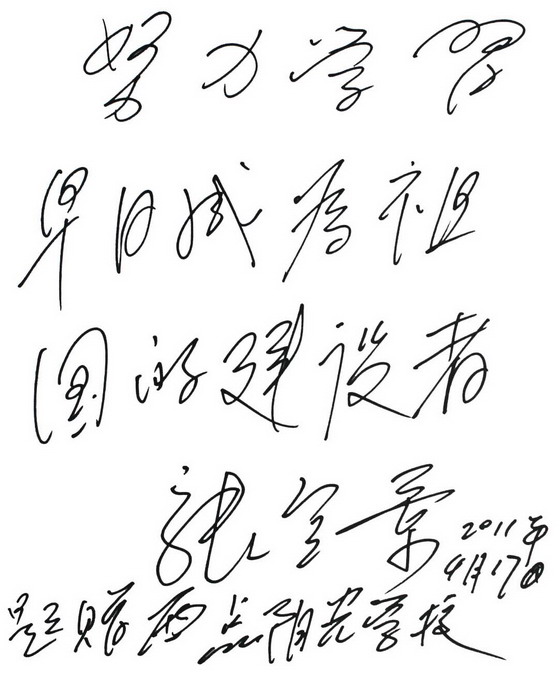 努力学習
早日成為祖
国的建设者
张全景 2011年
4月17日
题赠西点阳光学校